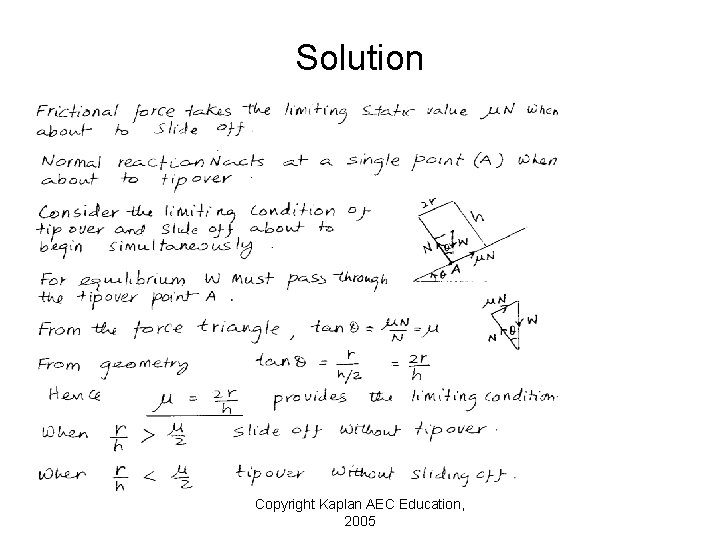 Solution
Frictional force takes the limiting static value μN when
about to slide off.
Normal reaction N acts at a single point (A) when
about to tip over.
Consider the limiting condition of
tip over and slide off about to
begin simultaneously.
2r
h
N θ W
μN
A
θ
For equilibrium W must pass through
the tipover point A.
From the force triangle, tan θ = μN/N = μ
μN
W
N θ
From geometry tan θ = r/h/2 = 2r/h
Hence μ = 2r/h provides the limiting condition.
When r/h > μ/2 slide off without tipover.
When r/h < μ/2 tipover without sliding off.
Copyright Kaplan AEC Education,
2005